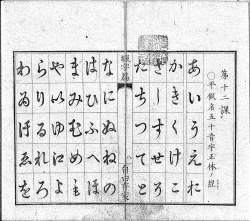 第十二課
○平假名五十音字正体
あいうえお
かきくけこ
さしすせそ
たちつてと
なにぬねの
はひふへほ
まみむめも
やいゆえよ
らりるれろ
わゐうゑを